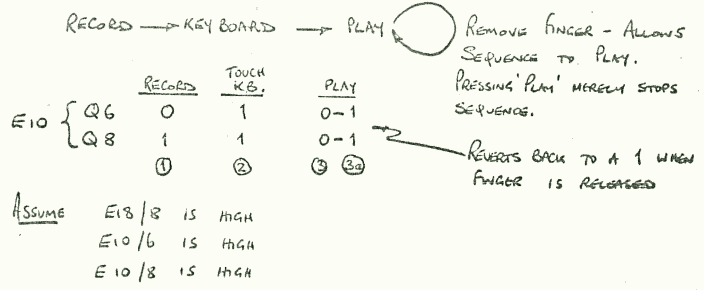 RECORD → KEYBOARD → PLAY
REMOVE FINGER - ALLOWS
SEQUENCE TO PLAY.
PRESSING 'PLAY' MERELY STOPS
SEQUENCE.
RECORD TOUCH KB. PLAY
E10 { Q6 0 1 0-1
Q8 1 1 0-1
① ② ③ 3a
REVERTS BACK TO A 1 WHEN
FINGER IS RELEASED
ASSUME E18/8 IS HIGH
E10/6 IS HIGH
E10/8 IS HIGH